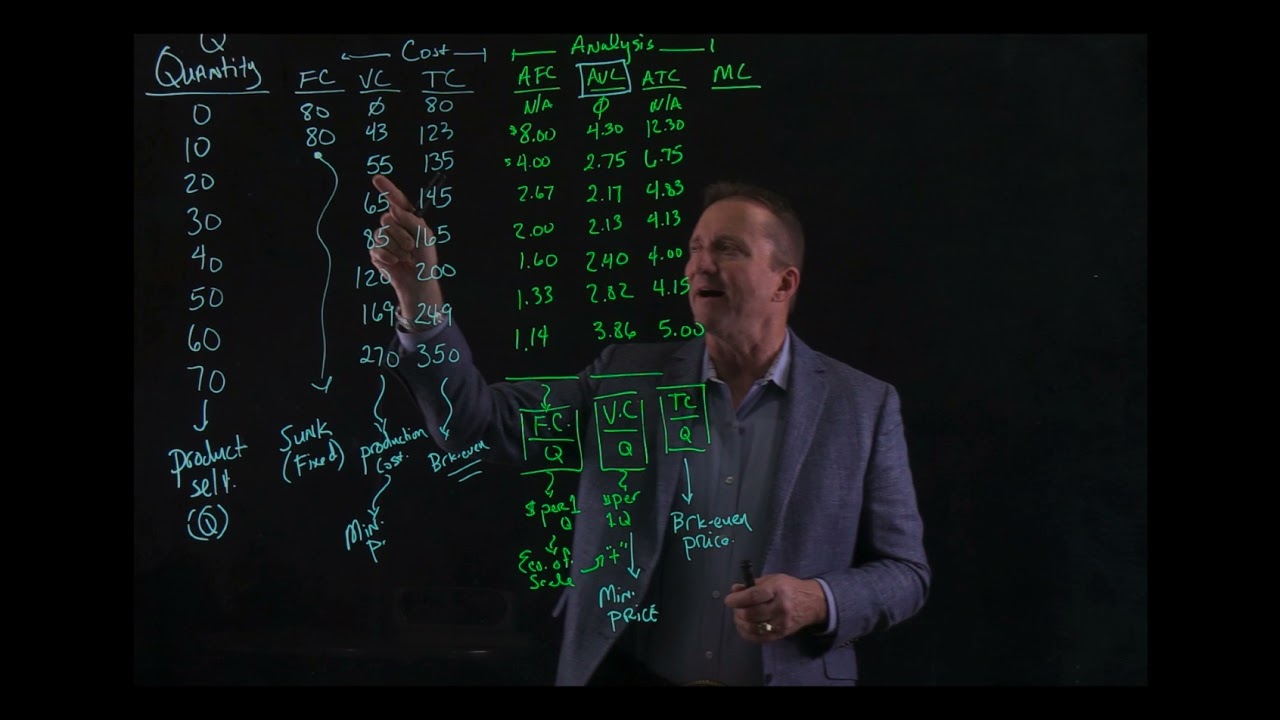 Q
Cost
Analysis
Quantity FC VC TC AFC AVC ATC MC
0 80 ∅ 80 N/A ∅ N/A
10 80 43 123 $8.00 4.30 12.30
20 55 135 $4.00 2.75 6.75
30 65 145 2.67 2.17 4.83
40 85 165 2.00 2.13 4.13
50 120 200 1.60 2.40 4.00
60 169 249 1.33 2.82 4.15
70 270 350 1.14 3.86 5.00
F.C. V.C TC
Q Q Q
Product
selt.
(Q)
Sunk
(Fixed)
production
Cost.
Brk-even
Min.
P.
$per1
Q
$per
1Q
Brk-even
price.
Eco. of.
Scale
"+"
Min.
PRICE